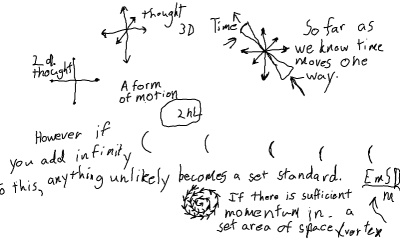 thought
3D
2 d.
thought
A form
of motion
Time
So far as
we know time
moves one
way.
2hL
However if
you add infinity
to this, anything unlikely becomes a set standard.
If there is sufficient
momentum in a
set area of space
vortex